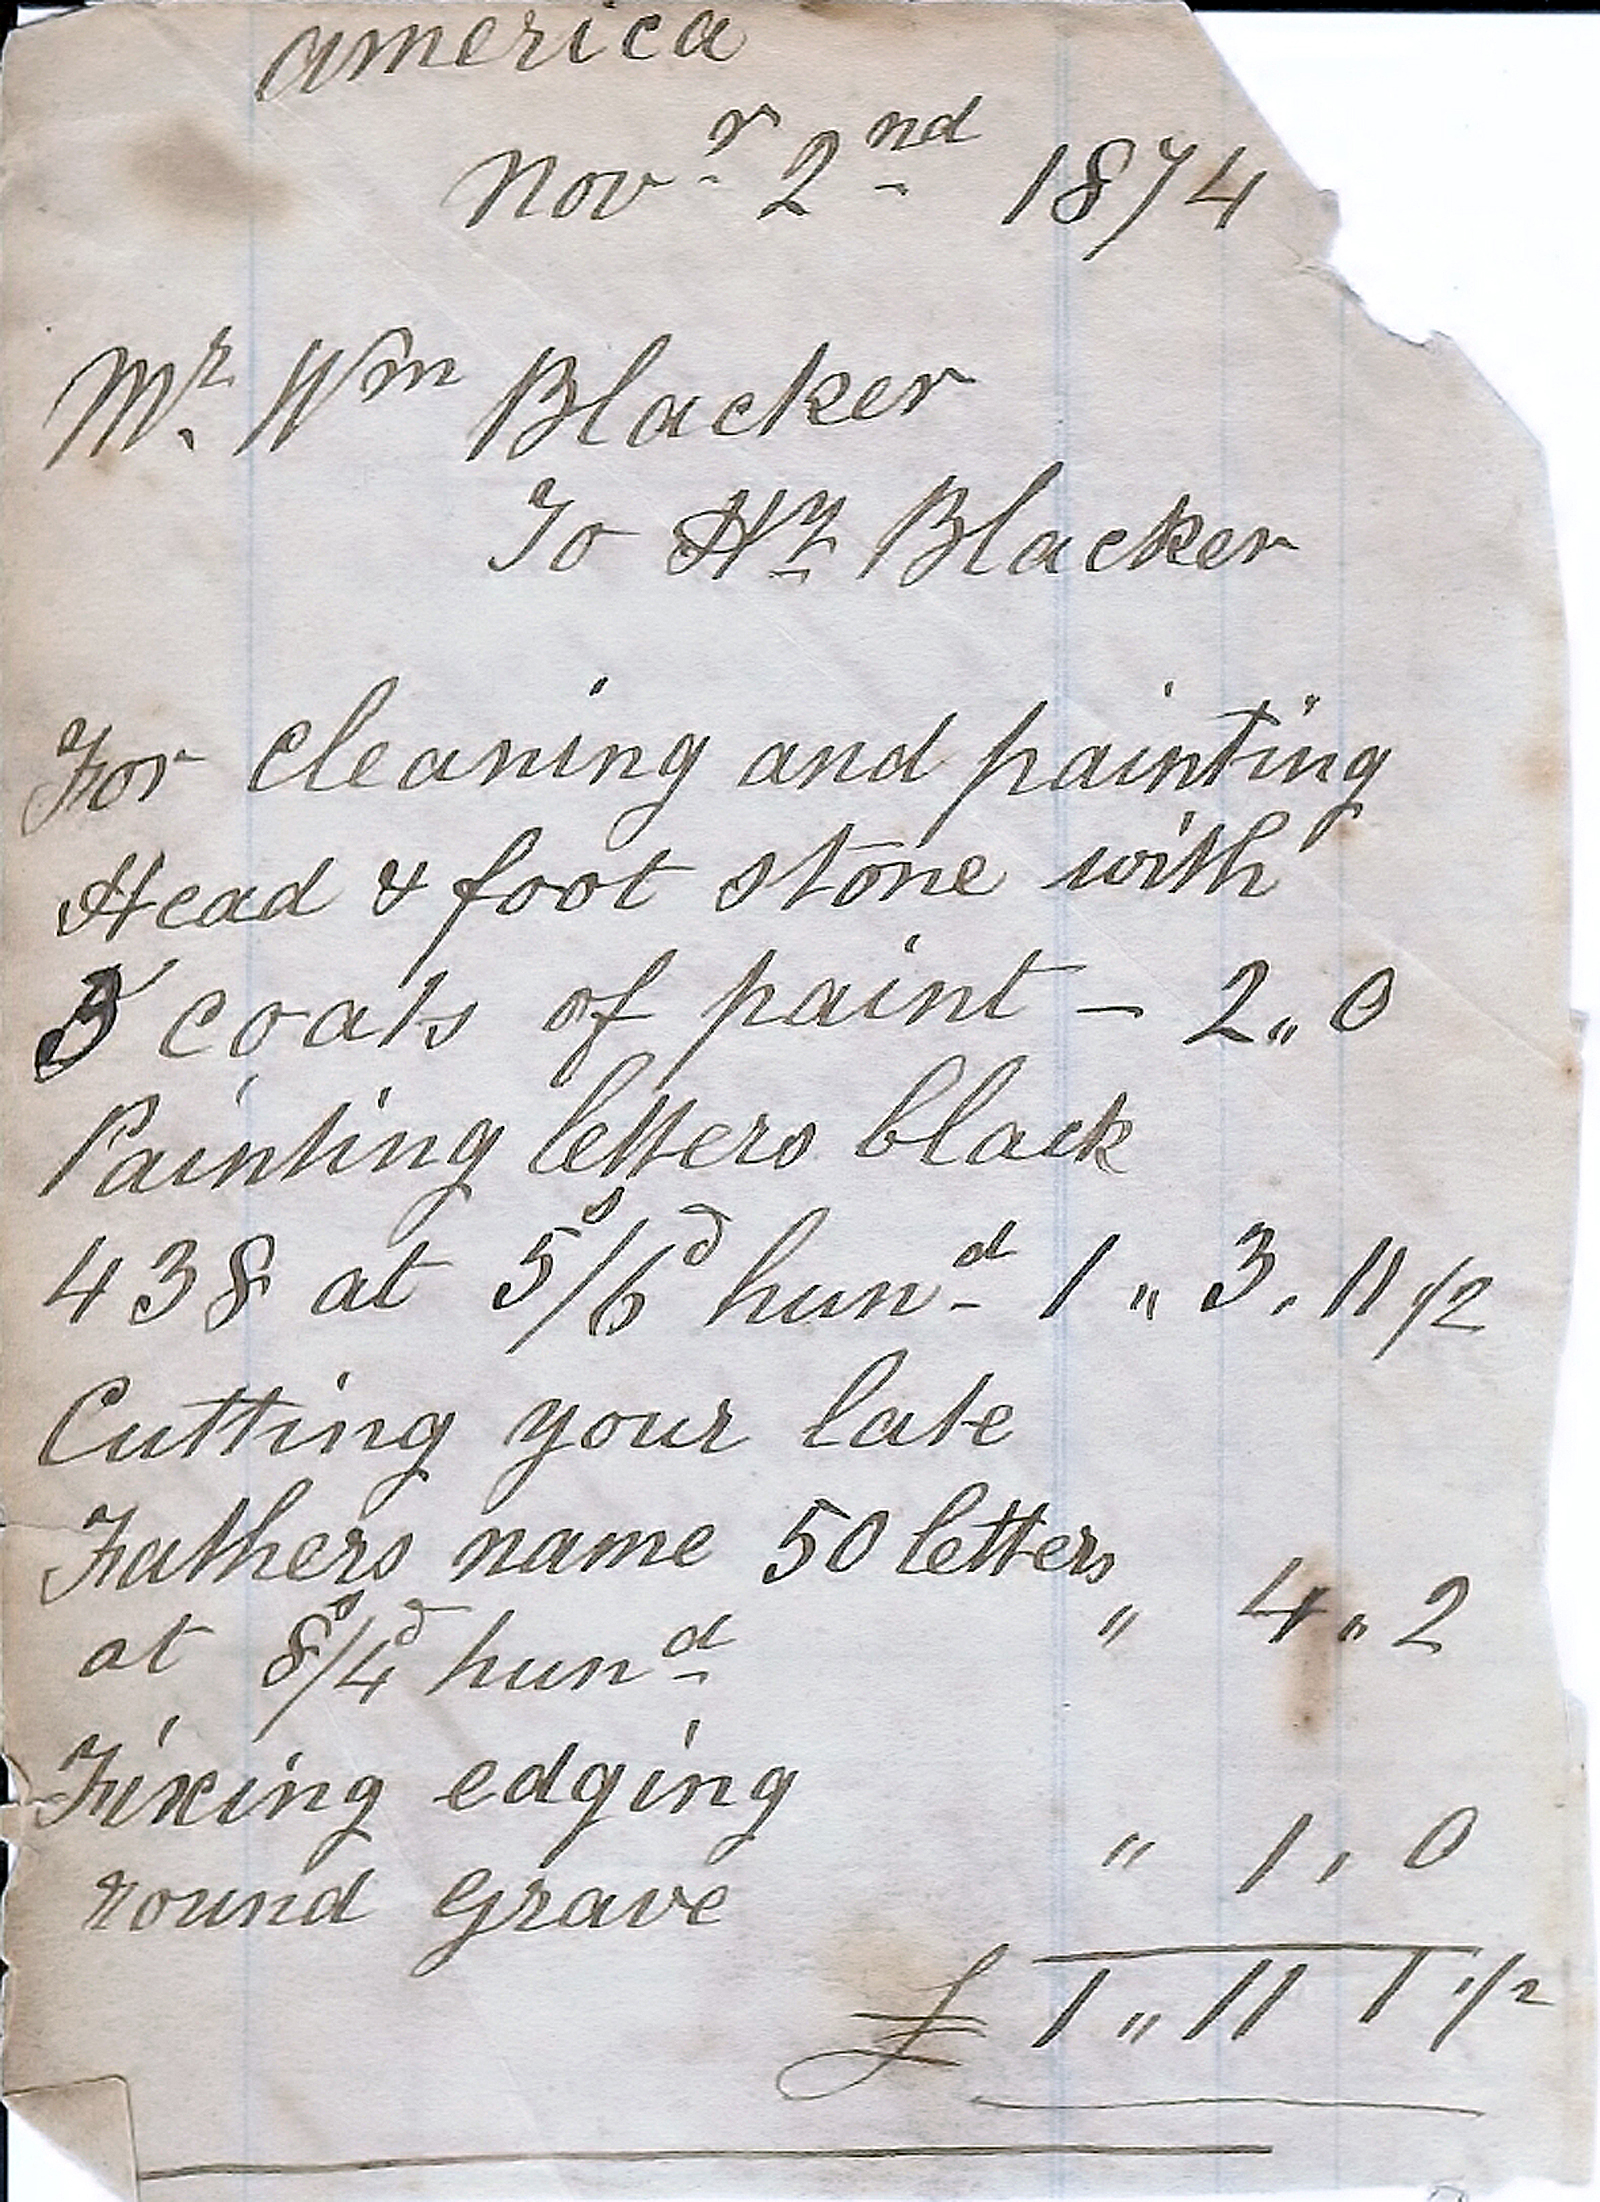 America
Novr 2nd 1874
Mr. Wm Blacker
To Hy Blacker
For cleaning and painting
Head & foot stone with
3 coats of paint — 2 " 0
Painting letters black
438 at 5s/6d hund 1 " 3 . 11 1/2
Cutting your late
Fathers name 50 letters
at 8s/4d hund " 4 " 2
Fixing edging
round Grave " 1 , 0
£ 1 " 11 1 1/2